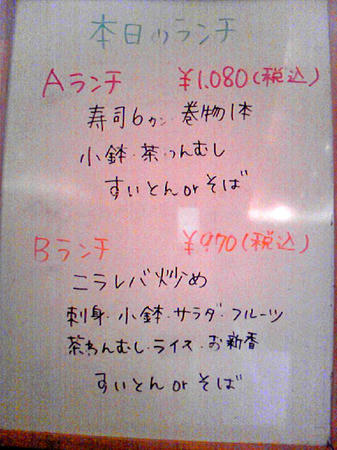 本日のランチ
Aランチ ¥1,080(税込)
寿司6カン・巻物1本
小鉢・茶わんむし
すいとん or そば
Bランチ ¥970(税込)
ニラレバ炒め
刺身・小鉢・サラダ・フルーツ
茶わんむし・ライス・お新香
すいとん or そば